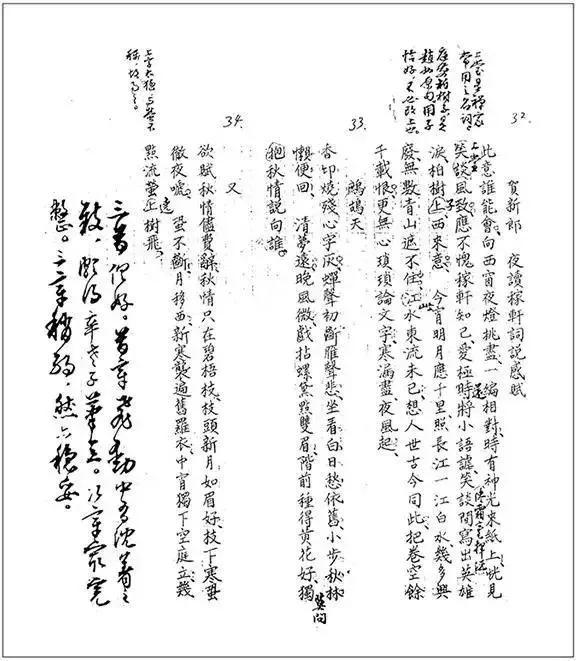 32.
賀新郎 夜讀稼軒詞說感賦
此意誰能會向西窗夜燈挑盡一編相對時有神光來紙上恍見
笑談風致應不愧稼軒知己愛極時將小語謔笑談間寫出英雄
淚柏樹上西來意 今宵明月應千里照長江一江白水幾多興
廢無數青山遮不住江水東流未已想人世古今同此把卷空餘
千載恨更無心瑣瑣論文字寒漏盡夜風起
上堂是禪宗
常用之名詞
庭前柏樹子是
趙州原句用子
恰好不必改上也
上堂
子
此
33.
鷓鴣天
香印燒殘心字灰蟬聲初斷雁聲悲坐看白日愁依舊小步秋林
懶便回 清夢遠晚風微戲拈螺黛點雙眉階前種得黃花好獨
抱秋情說向誰
莫問
34.
又
欲賦秋情儘費辭秋情只在碧梧枝枝頭新月如眉好枝下寒蛩
徹夜嘶 蛩不斷月移西新寒襲遍舊羅衣中宵獨下空庭立幾
點流螢上樹飛
遶
上字太穩與螢不
稱故易之。
三首俱好。首章飛動中有沈著之
致,頗得辛老子筆意。次章最完
整。三章稍弱,然亦穩妥。